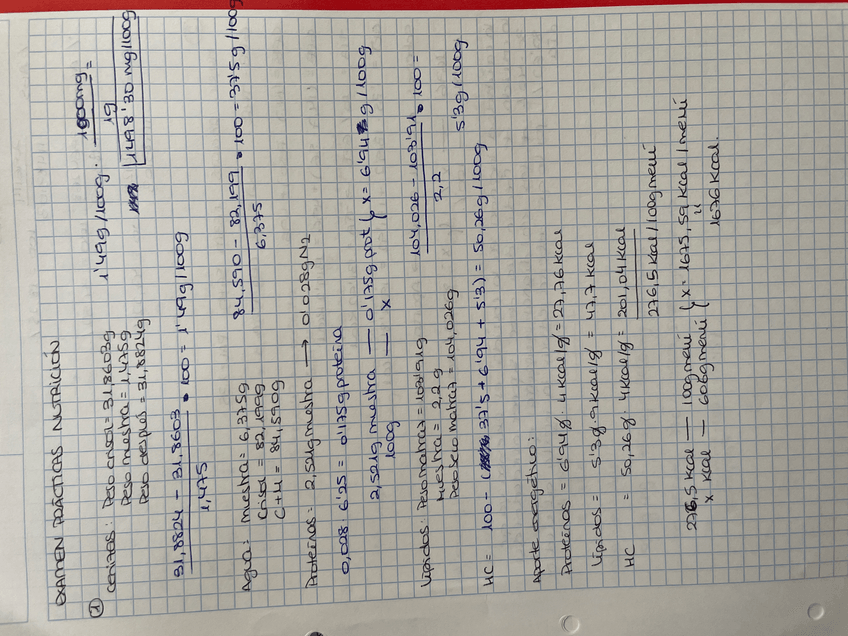 EXAMEN PRÁCTICAS NUTRICIÓN
① Cenizas: Peso crisol = 31,8603g
Peso muestra = 1,475g
Peso después = 31,8824g
1'49g/100g · 1000mg / 1g =
1498'30 mg/100g
31,8824 - 31,8603 / 1,475 · 100 = 1'49g/100g
Agua: muestra = 6,375g
Crisol = 82,199g
C+M = 84,590g
84,590 - 82,199 / 6,375 · 100 = 37'5g/100g
Proteínas: 2,521g muestra → 0'028g N2
0,028 · 6'25 = 0'175g proteína
2,521g muestra — 0'175g prot } x = 6'94 g/100g
100g — x
Lípidos: Peso matraz = 103'91g
Muestra = 2,2g
Peso seco matraz = 104,026g
104,026 - 103'91 / 2,2 · 100 =
5'3g/100g
HC = 100 - (37'5 + 6'94 + 5'3) = 50,26g/100g
Aporte energético:
Proteínas = 6'94g · 4kcal/g = 27,76 kcal
Lípidos = 5'3g · 9kcal/g = 47,7 kcal
HC = 50,26g · 4kcal/g = 201,04 kcal
276,5 kcal/100g menú
276,5 kcal — 100g menú } x = 1675,59 kcal/menú
x kcal — 606g menú
"
1676 kcal.